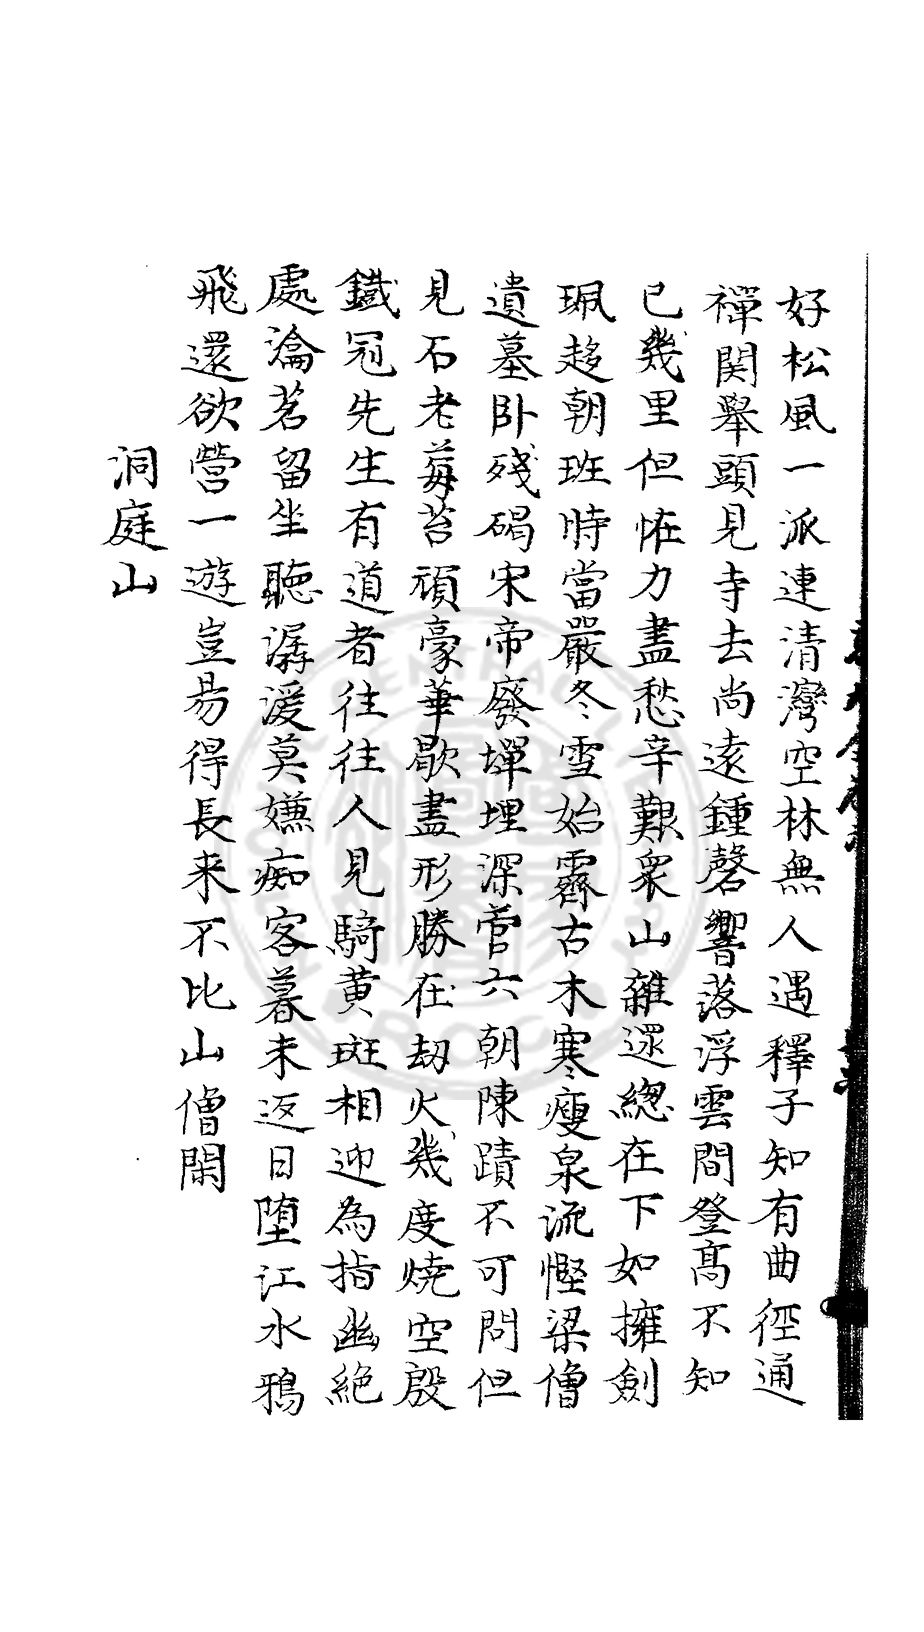 好松風一派連清灣空林無人遇釋子知有曲徑通
禪関舉頭見寺去尚遠鍾磬響落浮雲間登髙不知
已幾里但怪力盡愁辛艱衆山雜遝緫在下如擁劍
珮趍朝班時當嚴冬雪始霽古木寒瘦泉流慳梁僧
遺墓卧殘碣宋帝廢墠埋深菅六朝陳蹟不可問但
見石老莓苔頑豪華歇盡形勝在劫火幾度燒空殷
鐵冠先生有道者往往人見騎黄斑相迎為指幽絶
處瀹茗留坐聽潺湲莫嫌痴客暮未返日墮江水鴉
飛還欲營一遊豈易得長来不比山僧閑
洞庭山